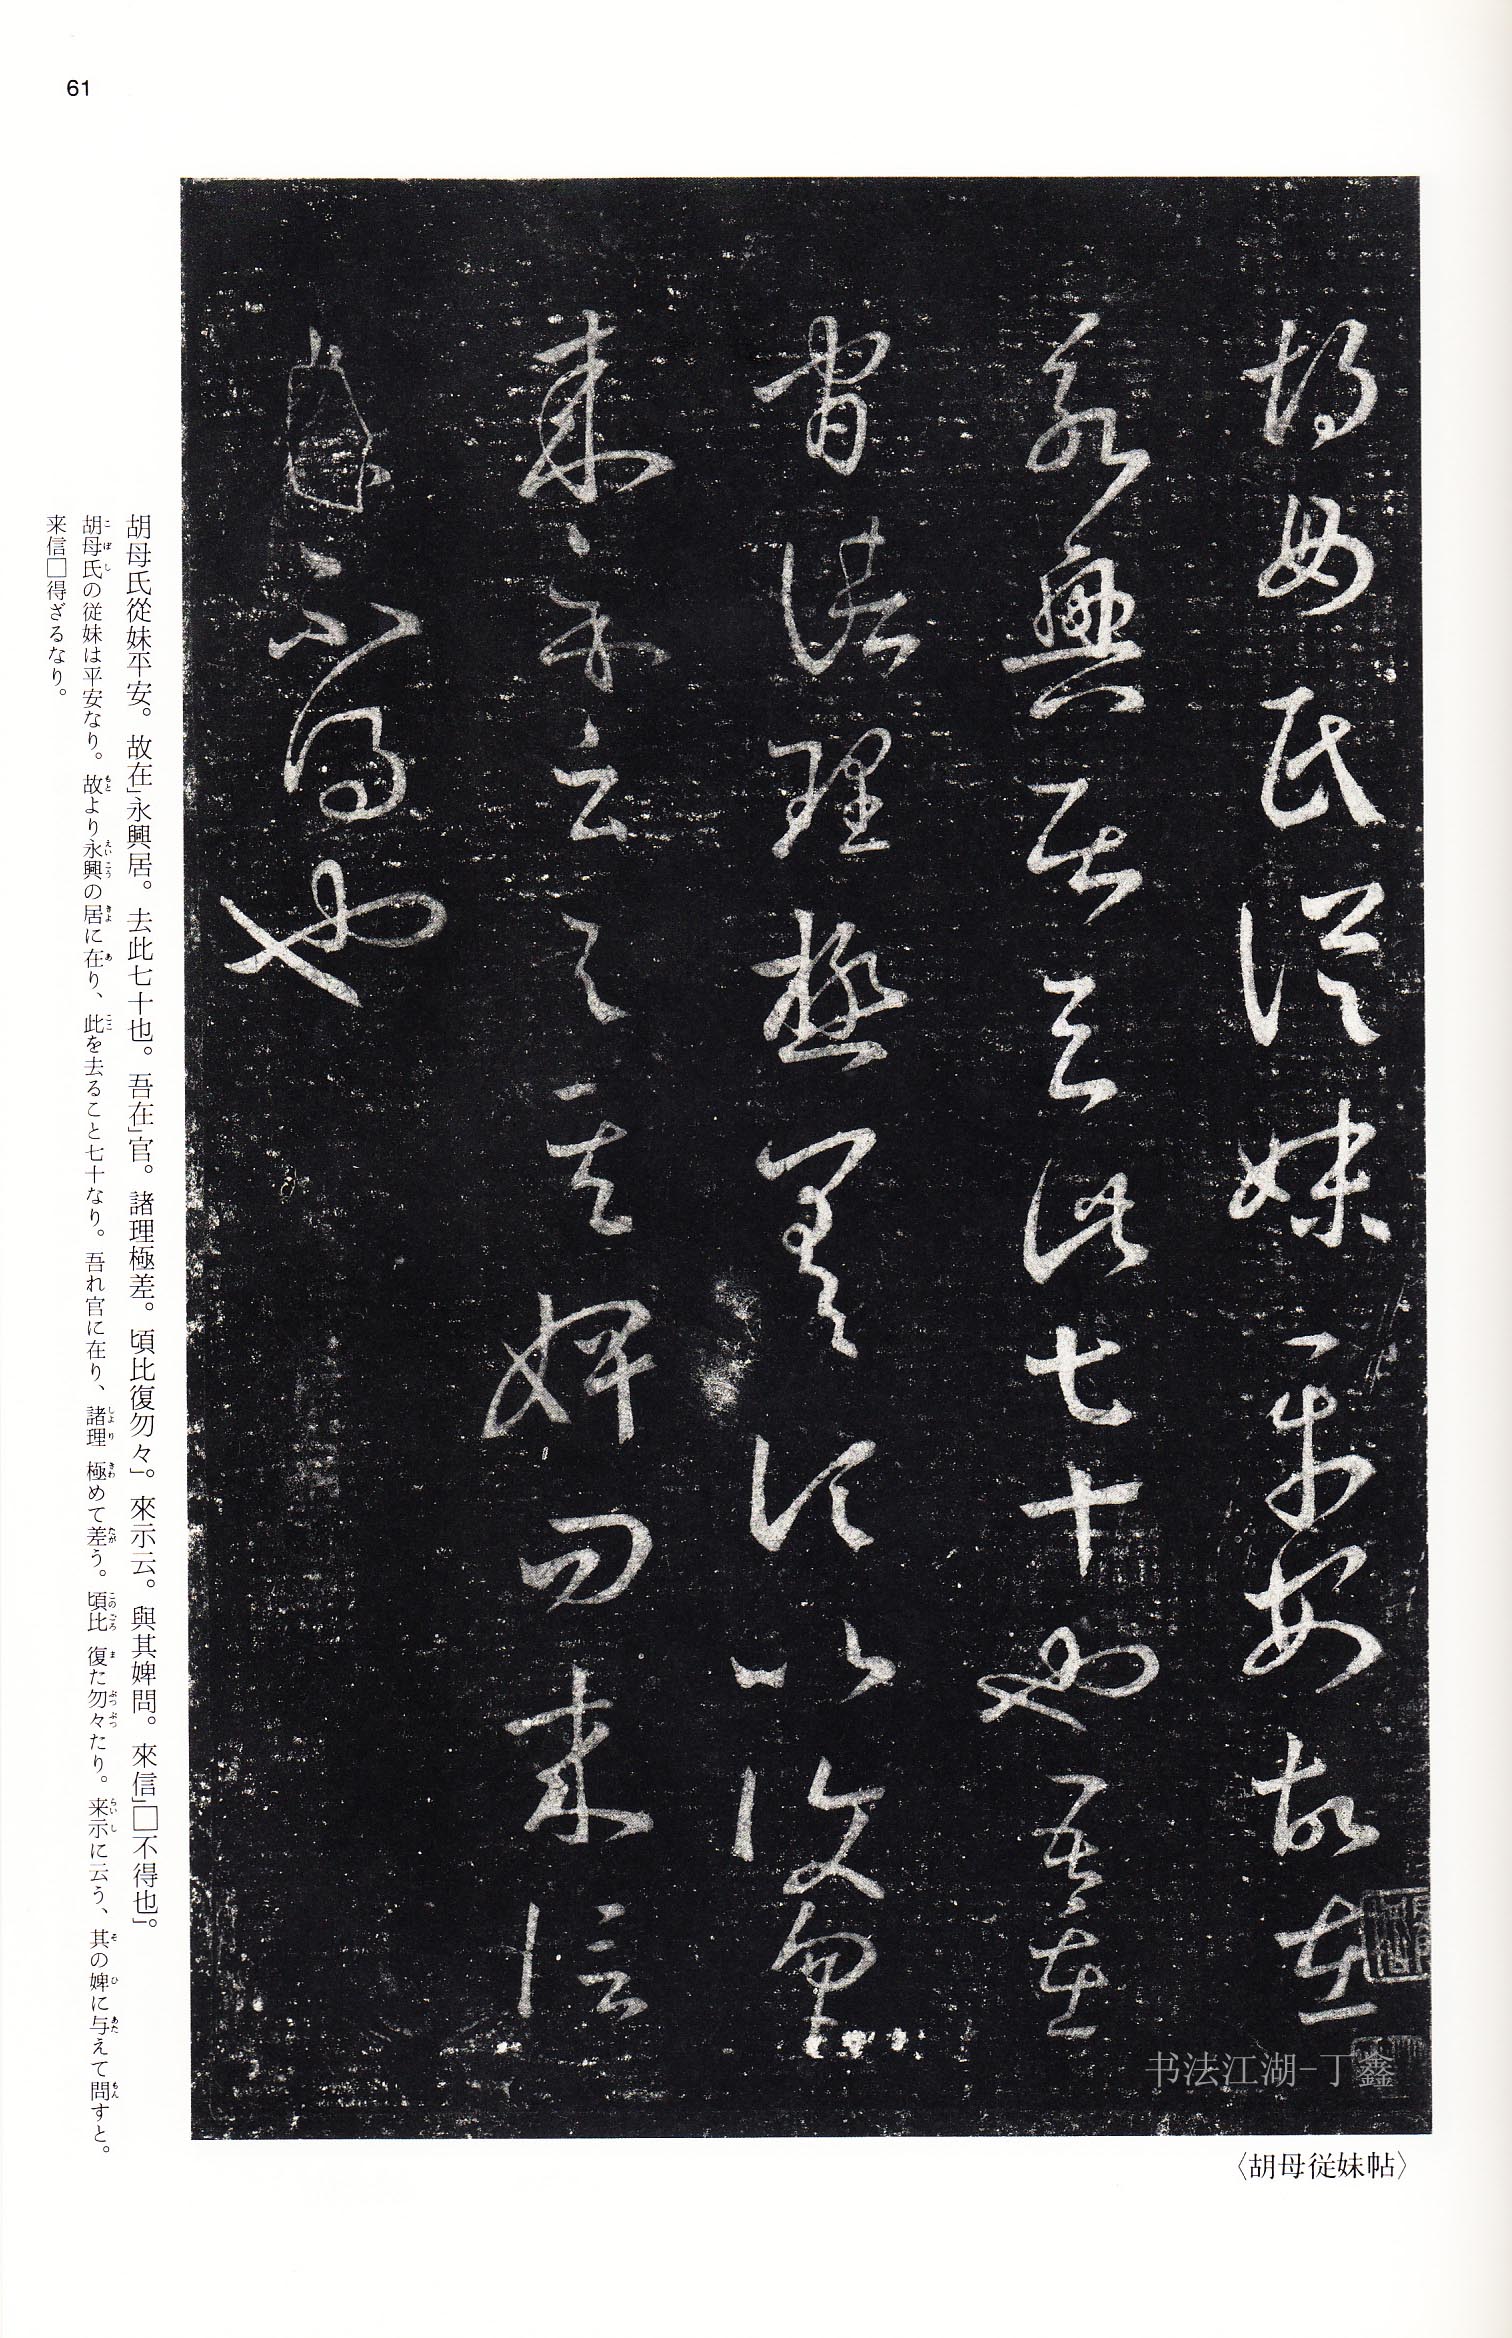 61
胡母氏從妹平安故在
永興居去此七十也吾在
官諸理極差頃比復勿々
來示云與其婢問來信
不得也
书法江湖-丁鑫
〈胡母従妹帖〉
胡母氏從妹平安。故在」永興居。去此七十也。吾在」官。諸理極差。頃比復勿々」。來示云。與其婢問。來信」□不得也」。
胡母氏の従妹は平安なり。故より永興の居に在り、此を去ること七十なり。吾れ官に在り、諸理極めて差う。頃比復た勿々たり。来示に云う、其の婢に与えて問すと。
来信□得ざるなり。